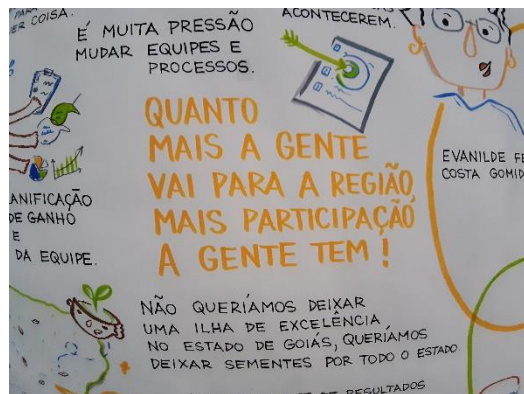 ER COISA.
ACONTECEREM.
É MUITA PRESSÃO
MUDAR EQUIPES E
PROCESSOS.
QUANTO
MAIS A GENTE
VAI PARA A REGIÃO,
MAIS PARTICIPAÇÃO
A GENTE TEM!
EVANILDE FE
COSTA GOMID
ANIFICAÇÃO
DE GANHO
E
DA EQUIPE.
NÃO QUERÍAMOS DEIXAR
UMA ILHA DE EXCELÊNCIA
NO ESTADO DE GOIÁS, QUERÍAMOS
DEIXAR SEMENTES POR TODO O ESTADO.
DE RESULTADOS